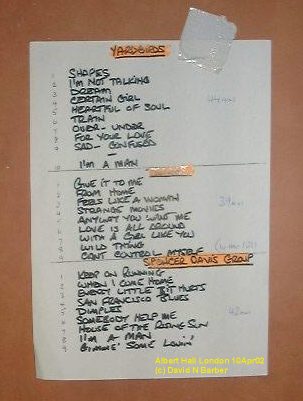 YARDBIRDS
1 SHAPES
2 I'M NOT TALKING
3 DREAM
4 CERTAIN GIRL
5 HEARTFUL OF SOUL
6 TRAIN
7 OVER-UNDER
8 FOR YOUR LOVE
9 SAD- CONFUSED
—
I'M A MAN
GIVE IT TO ME
FROM HOME
FEELS LIKE A WOMAN
STRANGE MOVIES
ANYWAY YOU WANT ME
LOVE IS ALL AROUND
WITH A GIRL LIKE YOU
WILD THING
CANT CONTROL MYSELF
SPENCER DAVIS GROUP
KEEP ON RUNNING
WHEN I COME HOME
EVERY LITTLE BIT HURTS
SAN FRANCISCO BLUES
DIMPLES
SOMEBODY HELP ME
HOUSE OF THE RISING SUN
I'M A MAN
GIMME SOME LOVIN'
Albert Hall London 10Apr02
(c) David N Barber